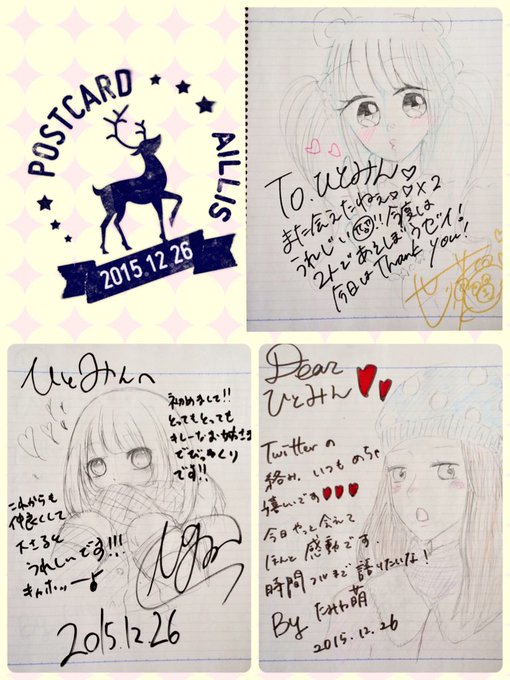 POSTCARD
AILLIS
2015.12.26
To.ひとみん♡
また会えたねぇ♡♡×2
うれじい!!今度は
2人であそぼうゼイ!
今日はThank you!
ひとみんへ
初めまして!!
とってもとっても
キレーなお姉さま
でびっくり
です!!
これからも
仲良くして
下さると
うれしいです!!!
キャホッ
2015.12.26
Dear
ひとみん
Twitterの
絡み、いつもめちゃ
嬉いです♥♥♥
今日やっと会えて
ほんと感動です.
時間フルまで語りたいな!
By たみわ萌
2015.12.26